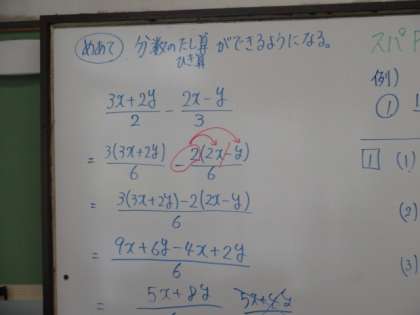 めあて 分数のたし算ひき算ができるようになる。
(3x+2y)/2 - (2x-y)/3
= 3(3x+2y)/6 - 2(2x-y)/6
= (3(3x+2y)-2(2x-y))/6
= (9x+6y-4x+2y)/6
= (5x+8y)/6
スパ
例)
①
1 (1)
(2)
(3)